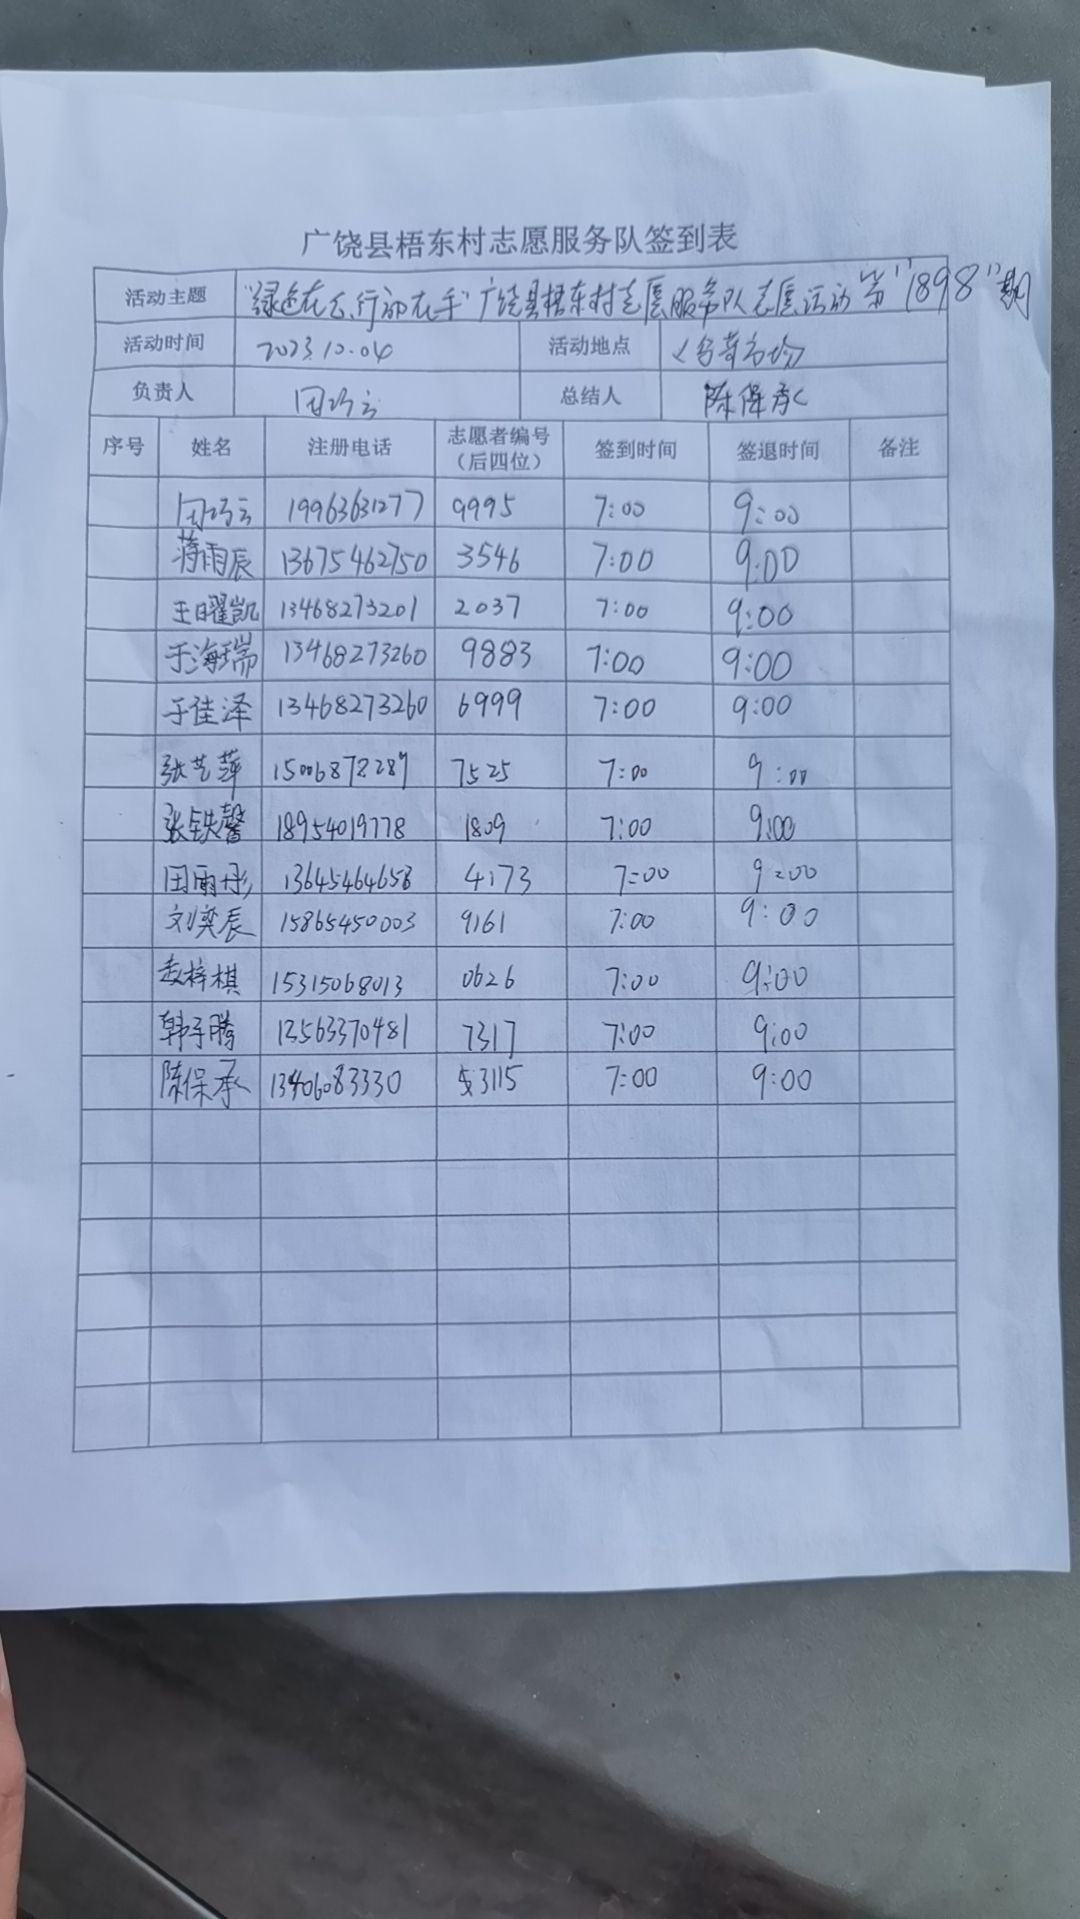 广饶县梧东村志愿服务队签到表
活动主题 “绿色在心,行动在手”广饶县梧东村志愿服务队志愿活动第“1898”期
活动时间 2023.10.04 活动地点
负责人 田巧云 总结人 陈保承
序号 姓名 注册电话 志愿者编号（后四位） 签到时间 签退时间 备注
田巧云 19963631277 9995 7:00 9:00
蒋雨辰 13675462750 3546 7:00 9:00
王曜凯 13468273201 2037 7:00 9:00
于海瑞 13468273260 9883 7:00 9:00
于佳泽 13468273260 6999 7:00 9:00
张艺萍 15006878287 7525 7:00 9:00
张铁馨 18954019778 1809 7:00 9:00
田雨彤 13645464658 4173 7:00 9:00
刘奕辰 15865450003 9161 7:00 9:00
赵梓棋 15315068013 0626 7:00 9:00
韩子腾 13563370481 7317 7:00 9:00
陈保承 13406083330 3115 7:00 9:00